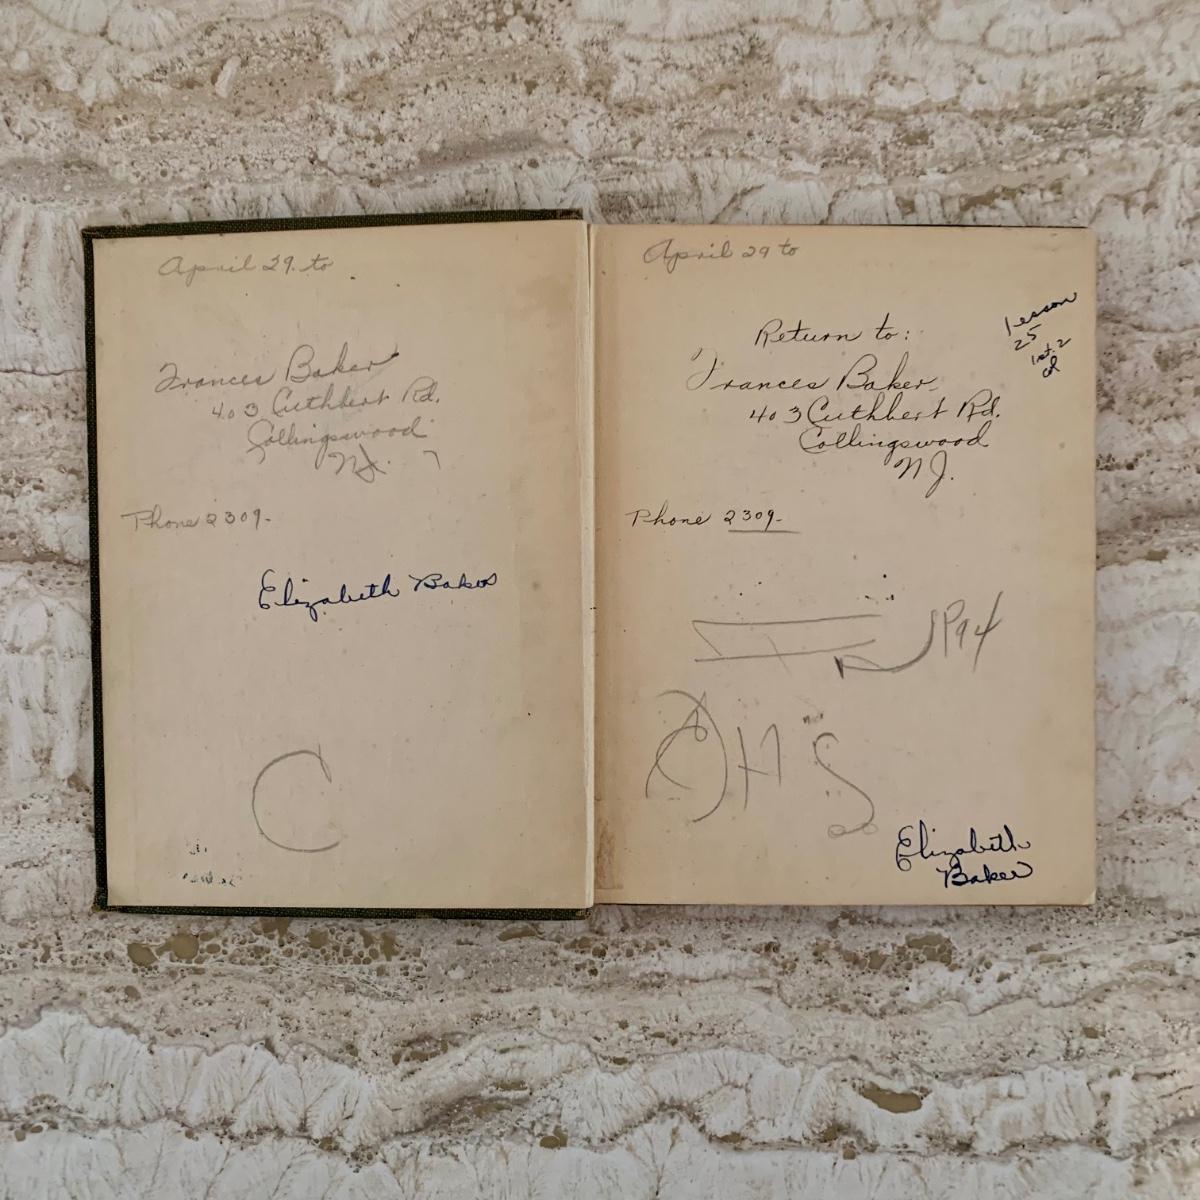 April 29. to
Frances Baker
403 Cuthbert Rd.
Collingswood
N.J.
Phone 2309-
Elizabeth Baker
C
April 29 to
Lesson
25
Return to:
Frances Baker
403 Cuthbert Rd.
Collingswood
N.J.
Phone 2309-
P94
C H S
Elizabeth
Baker